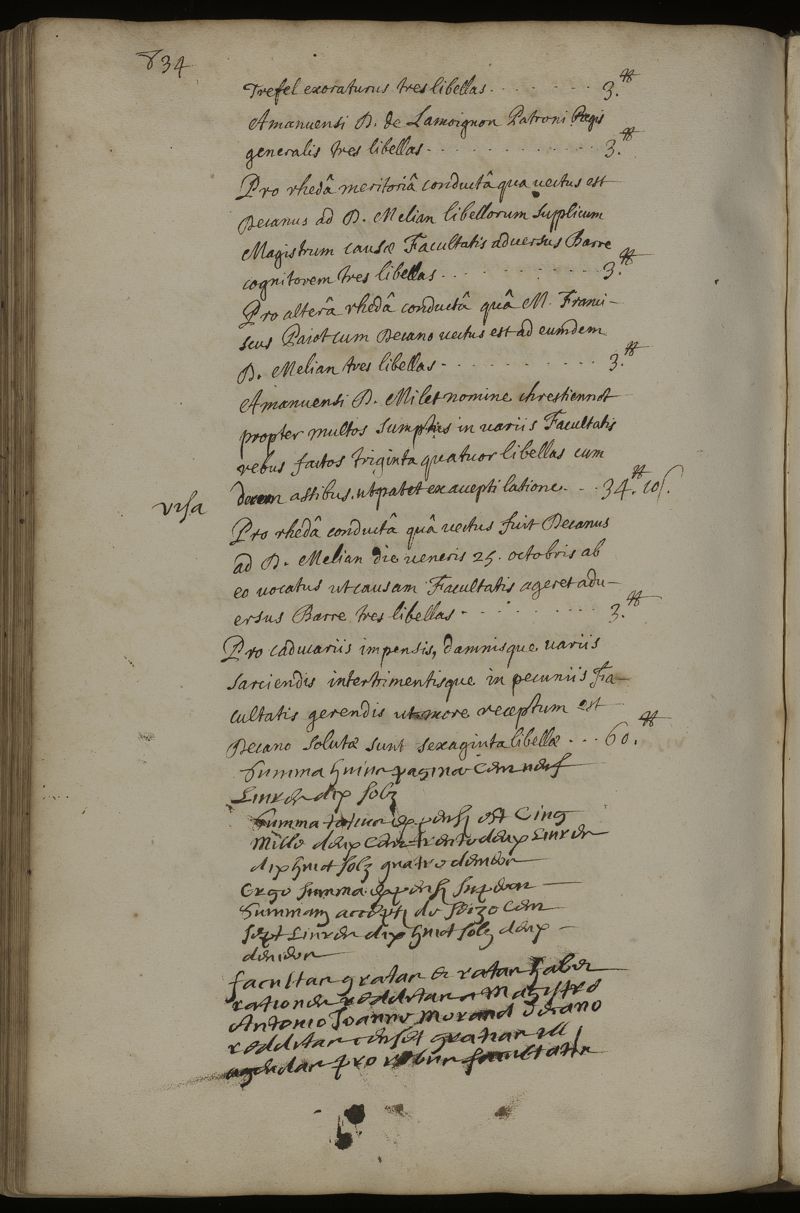 834
Trefel exoraturus tres libellas . . . . . . . 3.₶
Amanuensi D. de Lamoignon Patroni Regis
generalis tres libellas . . . . . . . . . . 3.₶
Pro rhedâ meritoriâ conductâ qua vectus est
Decanus ad D. Melian libellorum supplicum
Magistrum causæ Facultatis adversus Barre
cognitorem tres libellas . . . . . . . . . . 3.₶
Pro alterâ rhedâ conductâ quâ M. Franci-
scus Paiot cum Decano vectus est ad eumdem
D. Melian tres libellas . . . . . . . . . . 3.₶
Amanuensi D. Milet nomine chrestiennot
propter multos sumptus in variis Facultatis
rebus factos triginta quatuor libellas cum
visa
decem assibus, ut patet ex accepti latione . . . 34.₶ 10s.
Pro rhedâ conductâ quâ vectus fuit Decanus
ad D. Melian die veneris 25. octobris ab
eo vocatus ut causam Facultatis ageret adu-
ersus Barre tres libellas . . . . . . . . . 3.₶
Pro caducariis impensis, damnisque variis
sarciendis intertrimentisque in pecuniis Fa-
cultatis gerendis ut more receptum est
Decano solutæ sunt sexaginta libellæ . . . 60.₶
Summa huius paginæ Cent neuf
Liures dix solz
Summa totius expensi est Cinq
Mille deux Cens trente deux Liures
dix huict solz quatre deniers
Ergo summa expensi superat
Summam accepti de seize Cens
sept Liures dix huict solz deux
deniers
facultas gratas et ratas habet
rationes redditas a Magistro
Antonio Joanne Morand Decano
redditas censet gratias illi
agendas pro rebus facultatis